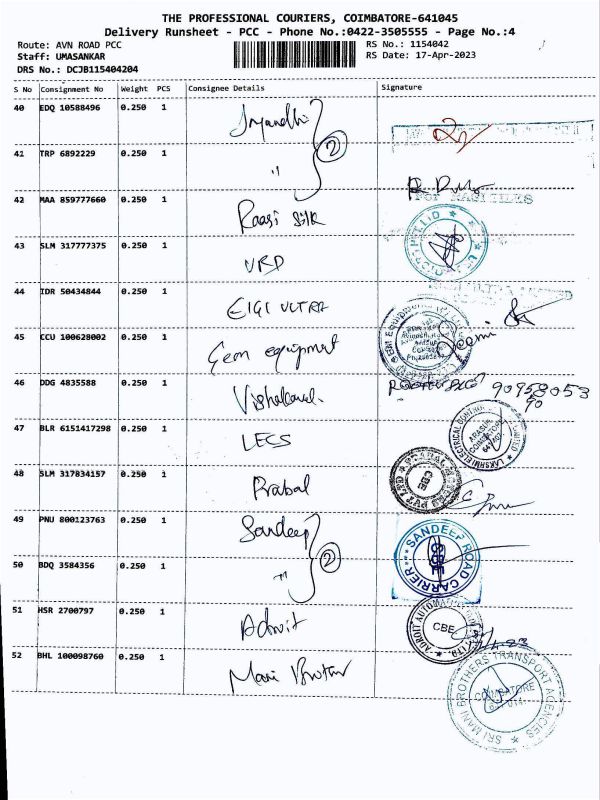 THE PROFESSIONAL COURIERS, COIMBATORE-641045
Delivery Runsheet - PCC - Phone No.:0422-3505555 - Page No.:4
Route: AVN ROAD PCC
Staff: UMASANKAR
DRS No.: DCJB115404204
RS No.: 1154042
RS Date: 17-Apr-2023
S No Consignment No Weight PCS Consignee Details Signature
40 EDQ 10588496 0.250 1
41 TRP 6892229 0.250 1 " 2
42 MAA 859777660 0.250 1 Raasi Silk
43 SLM 317777375 0.250 1 URP
44 IDR 50434844 0.250 1 EIGI ULTRA
45 CCU 100628002 0.250 1 Gem equipment
46 DDG 4835588 0.250 1 90958053
90
47 BLR 6151417298 0.250 1 LECS
48 SLM 317834157 0.250 1 Prabal
49 PNU 800123763 0.250 1 Sandeep SANDEEP ROAD CARRIER CBE
50 BDQ 3584356 0.250 1 " 2
51 HSR 2700797 0.250 1 Adroit CBE
52 BHL 100098760 0.250 1 Mani Brother
SRI MANI BROTHERS TRANSPORT AGENCIES COIMBATORE